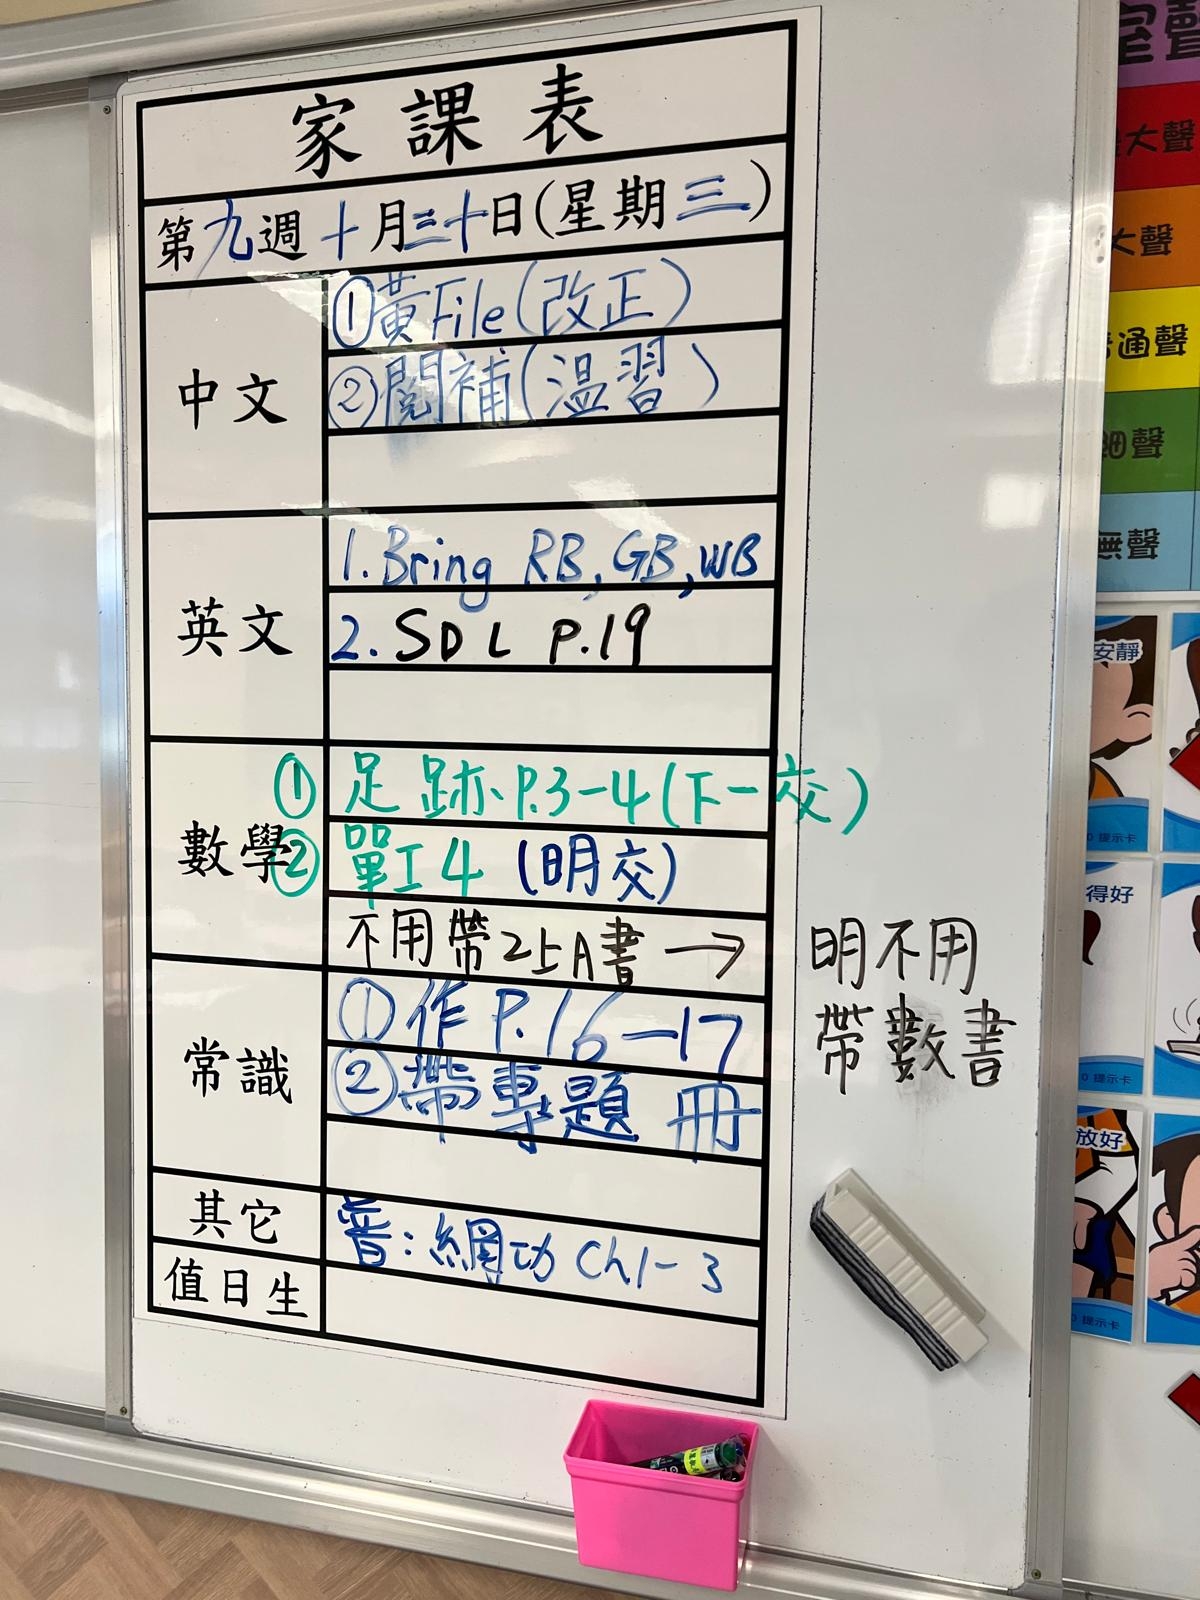 家課表
第九週十月三十日(星期三)
中文
①黃File(改正)
②閱補(溫習)
英文
1.Bring RB,GB,WB
2.SDL P.19
數學
①足跡P.3-4(下一交)
②單工4(明交)
不用帶2上A書→
明不用
帶數書
常識
①作P.16-17
②帶專題冊
其它
普:網功Ch.1-3
值日生
大聲
大聲
通聲
細聲
無聲
安靜
提示卡
得好
提示卡
放好
提示卡